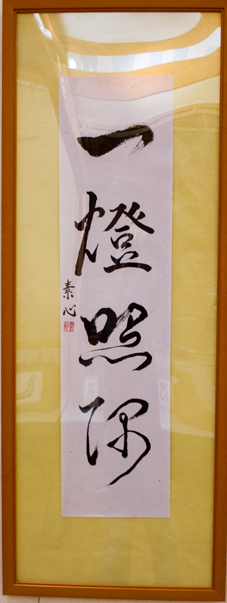 一燈照隅
素心